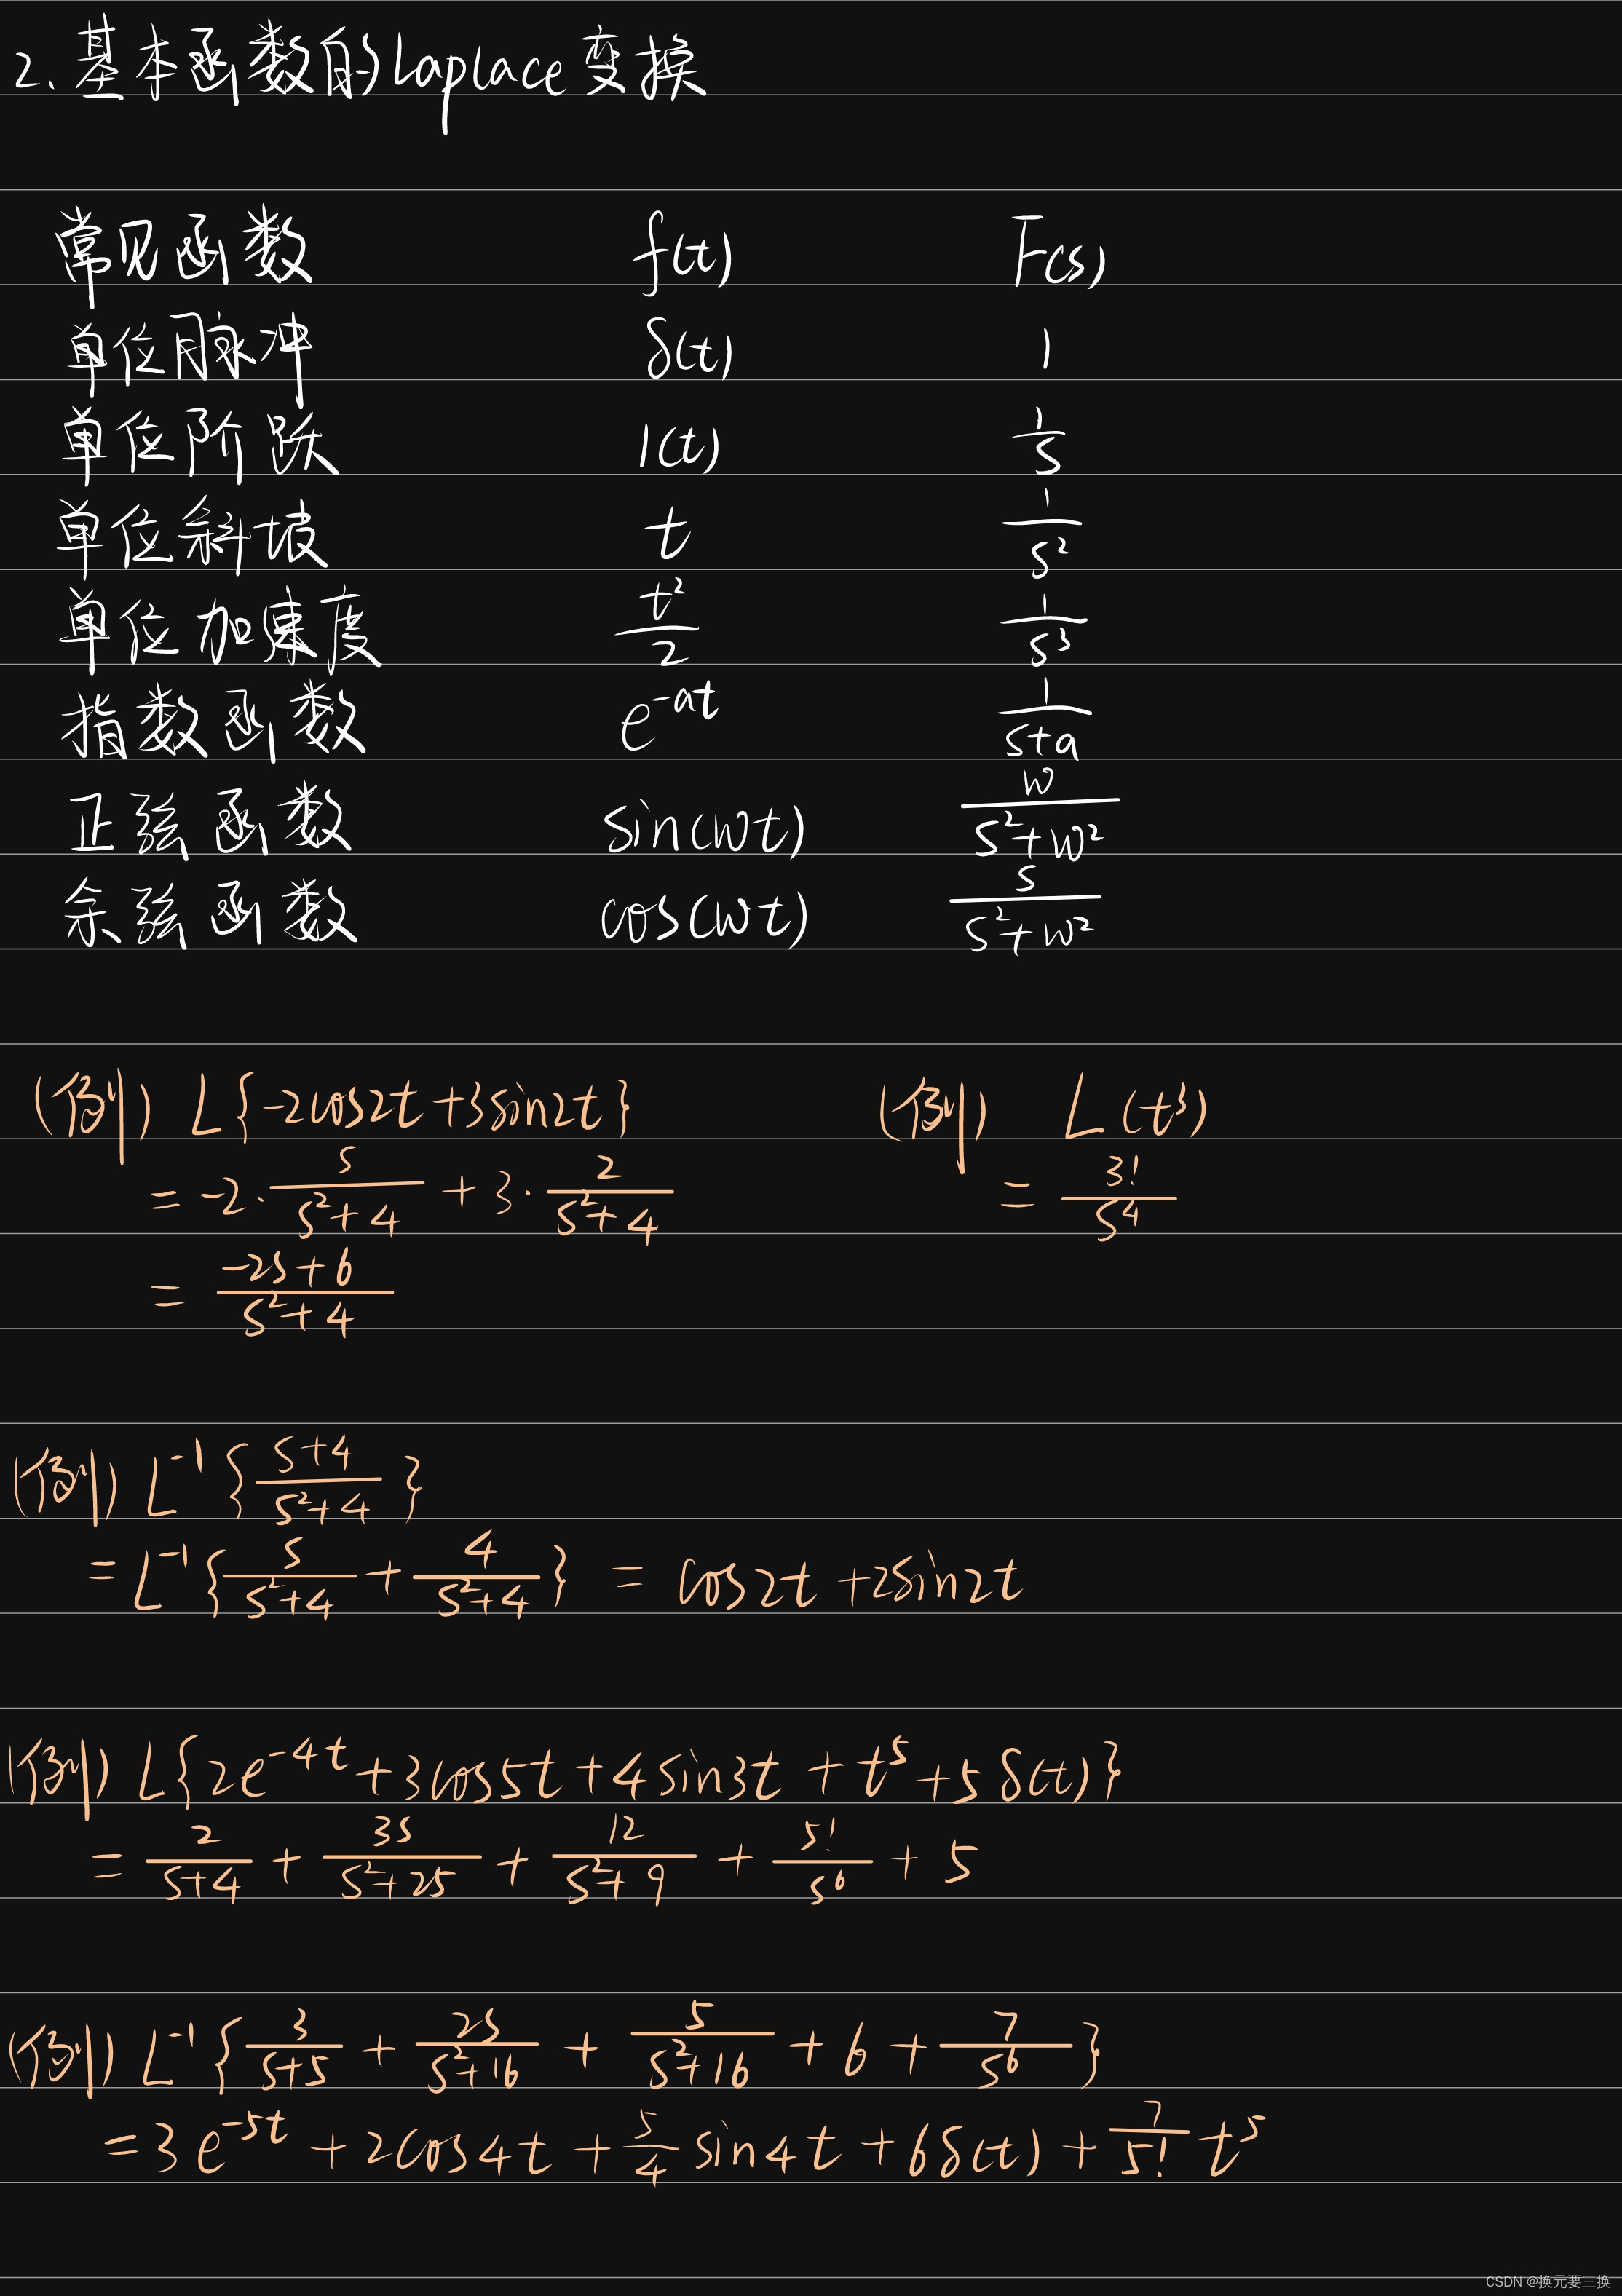 2.基本函数的Laplace变换
常见函数 f(t) F(s)
单位脉冲 δ(t) 1
单位阶跃 1(t) 1/s
单位斜坡 t 1/s²
单位加速度 t²/2 1/s³
指数函数 e^(-at) 1/(s+a)
正弦函数 sin(wt) w/(s²+w²)
余弦函数 cos(wt) s/(s²+w²)
(例) L{-2cos2t+3sin2t}
= -2·s/(s²+4) + 3·2/(s²+4)
= (-2s+6)/(s²+4)
(例) L(t³)
= 3!/s⁴
(例) L⁻¹{(s+4)/(s²+4)}
= L⁻¹{s/(s²+4) + 4/(s²+4)} = cos2t+2sin2t
(例) L{2e^(-4t)+3cos5t+4sin3t+t⁵+5δ(t)}
= 2/(s+4) + 3s/(s²+25) + 12/(s²+9) + 5!/s⁶ + 5
(例) L⁻¹{3/(s+5) + 2s/(s²+16) + 5/(s²+16) + 6 + 7/s⁶}
=3e^(-5t) + 2cos4t + 5/4 sin4t + 6δ(t) + 7/5! t⁵
CSDN @换元要三换